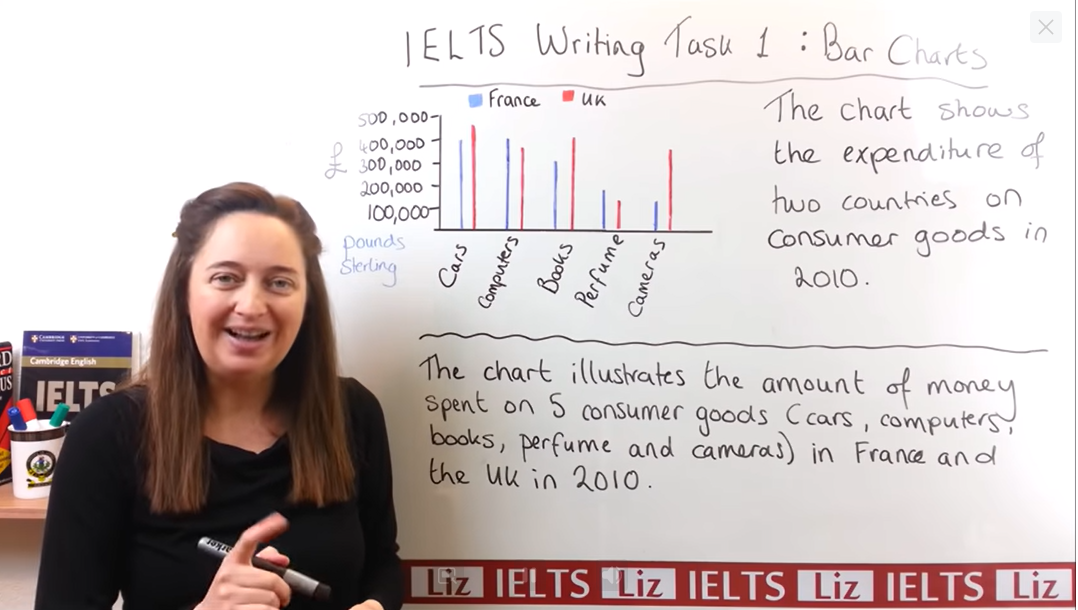 IELTS Writing Task 1 : Bar Charts
France UK
500,000
400,000
£ 300,000
200,000
100,000
pounds
Sterling
Cars
Computers
Books
Perfume
Cameras
The chart shows
the expenditure of
two countries on
consumer goods in
2010.
The chart illustrates the amount of money
spent on 5 consumer goods (cars, computers,
books, perfume and cameras) in France and
the UK in 2010.
Cambridge English
IELTS
Liz IELTS Liz IELTS Liz IELTS Liz